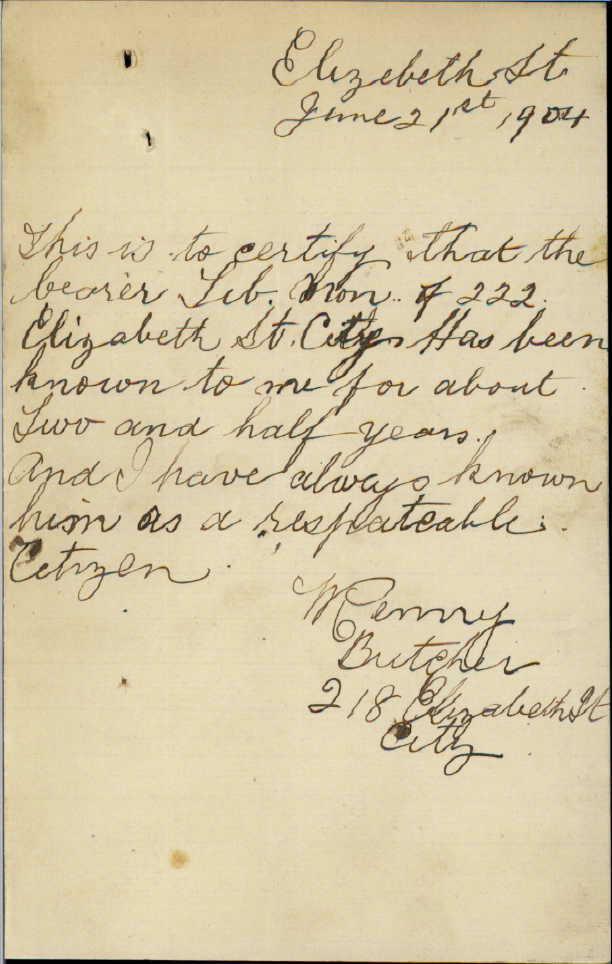 Elizebeth St
June 21st, 1904
This is to certify that the
bearer Leb. Mon. of 222.
Elizabeth St. City. Has been
known to me for about
Two and half years.
And I have always known
him as a respateable.
Citizen.
Butcher
218 Elizabeth St
City